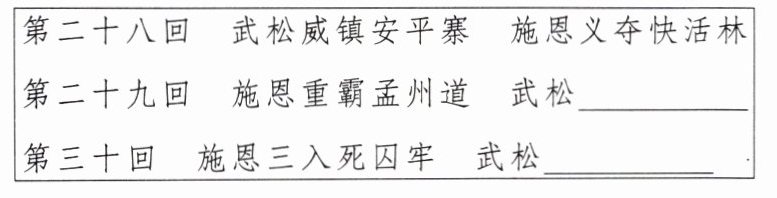 第二十八回 武松威镇安平寨 施恩义夺快活林
第二十九回 施恩重霸孟州道 武松__________
第三十回 施恩三入死囚牢 武松__________